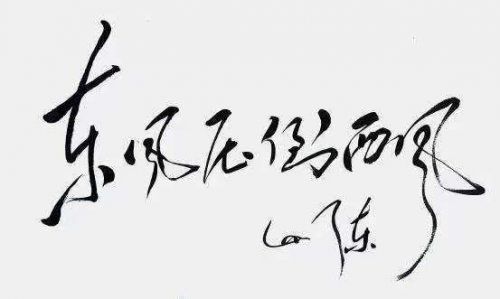 东风压倒西风
山陈